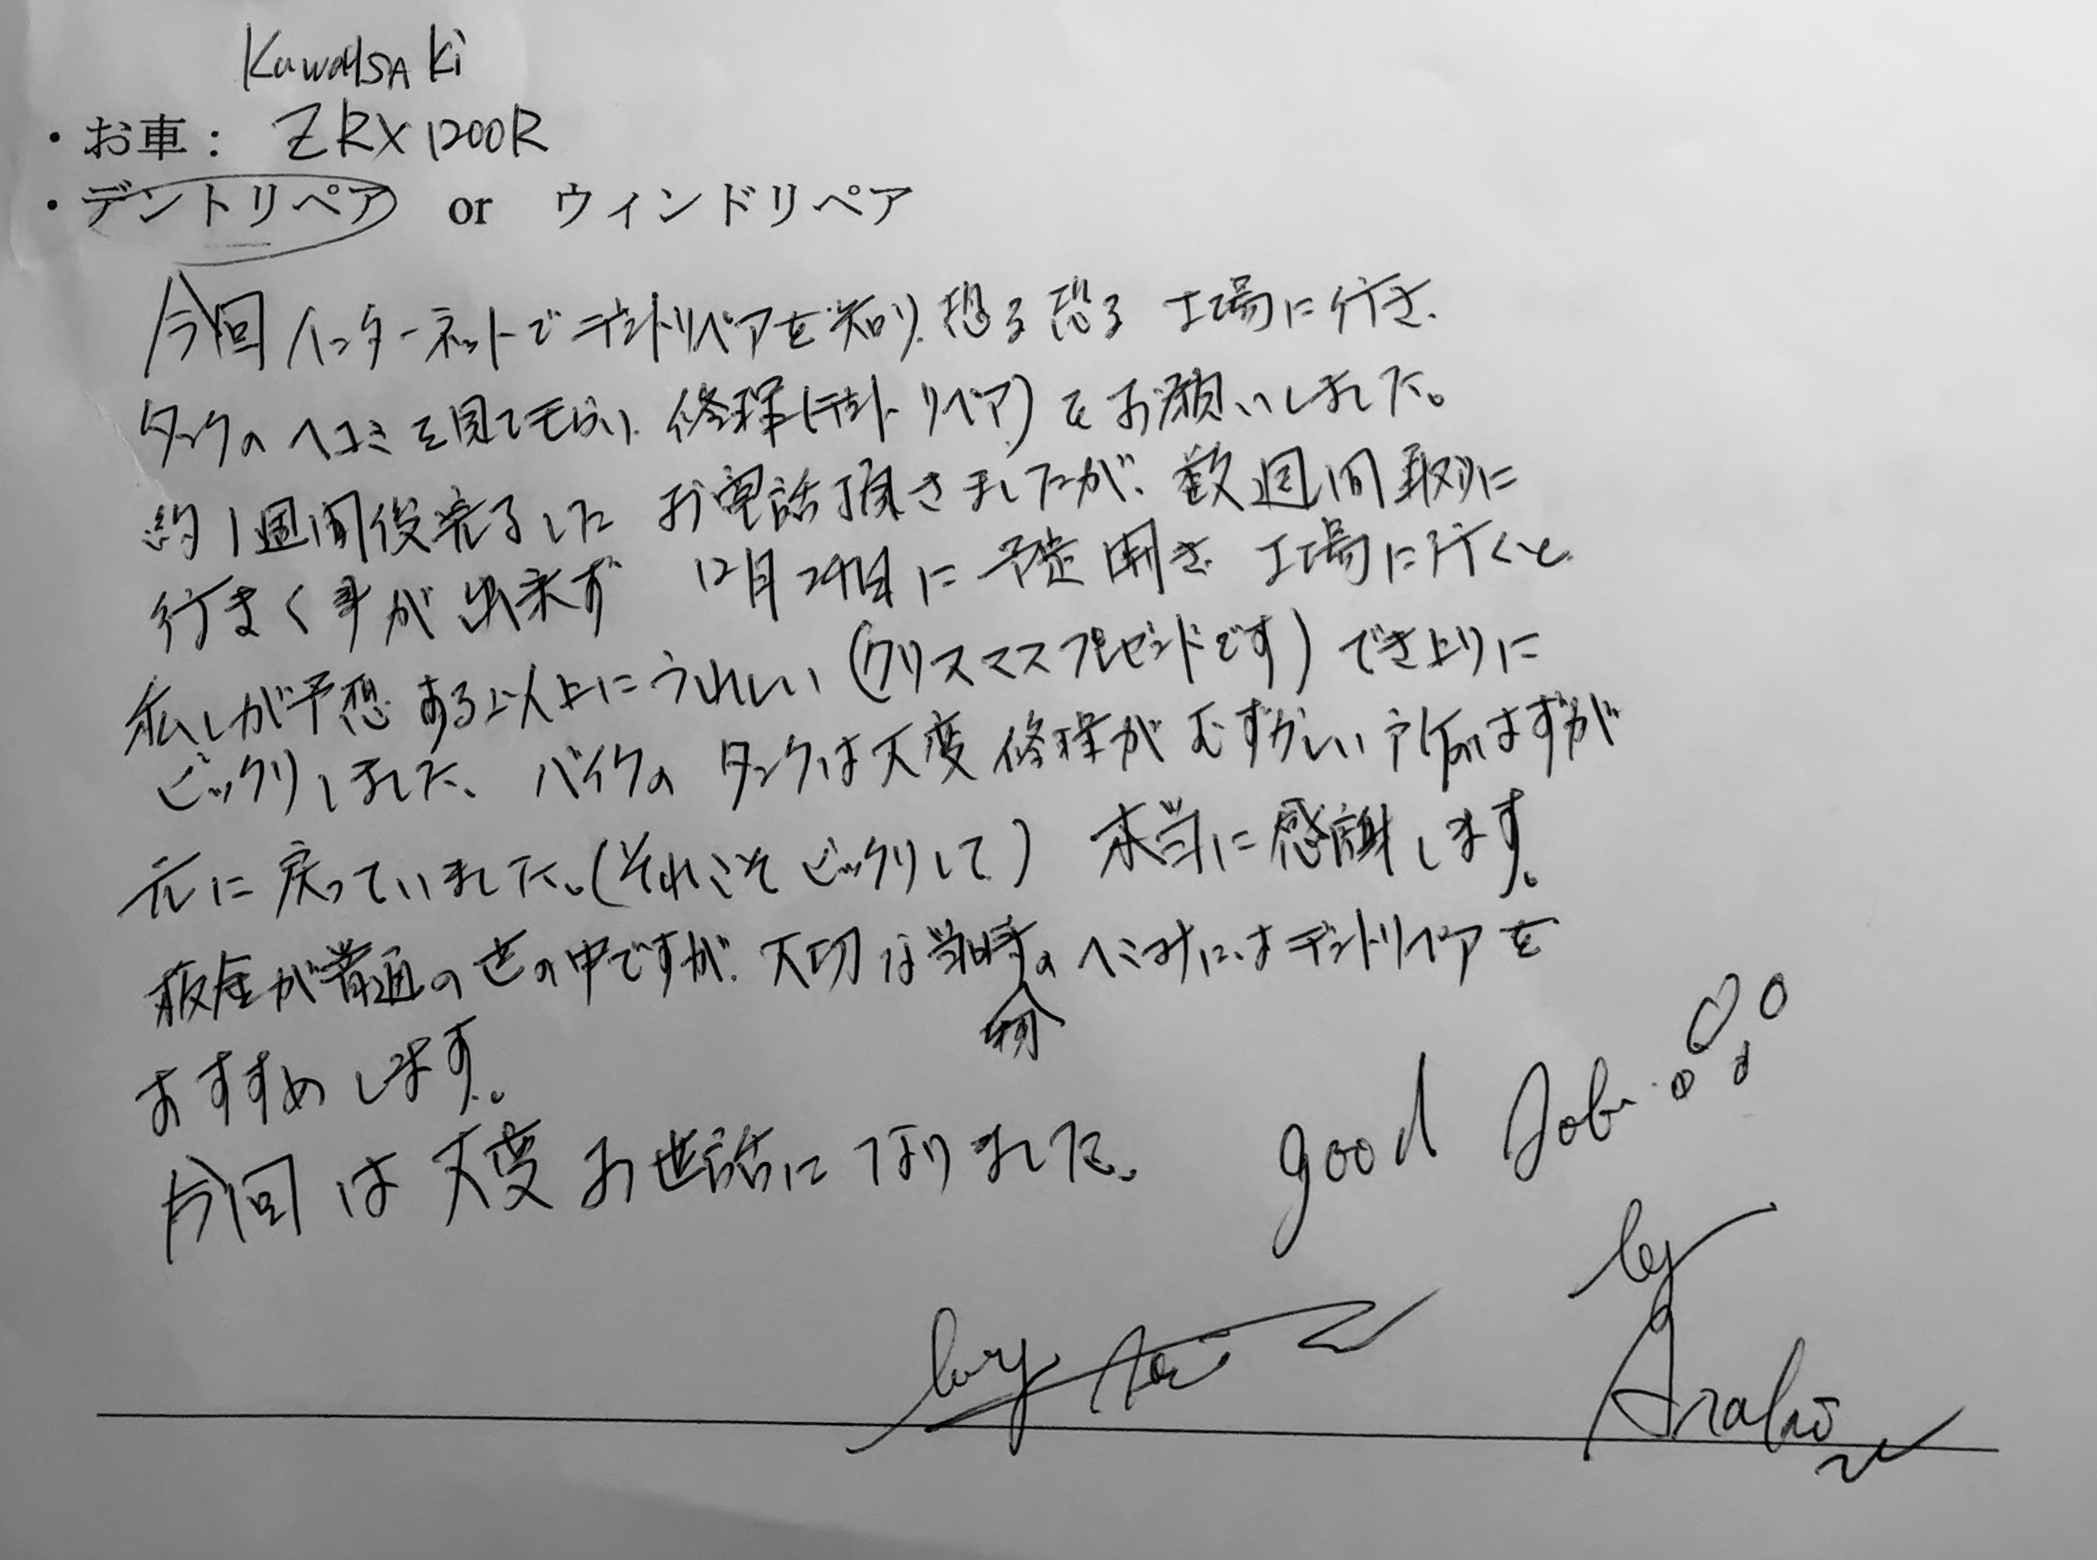 KawaSAKi
・お車： ZRX1200R
・デントリペア or ウィンドリペア
今回インターネットでデントリペアを知り、恐る恐る 工場に行き、
タンクのヘコミを見てもらい、修理(デントリペア)をお願いしました。
約1週間後完了した お電話頂きましたが、数週間取りに
行まく事が出来ず 12月24日に 開き 工場に行くと
私しが予想する以上にうれしい(クリスマスプレゼントです)でき上りに
ビックリしました、バイクの タンクは大変 修理がむずかしい はずが
元に戻っていました。(それこそビックリして) 本当に感謝します。
板金が普通の世の中ですが、大切な の にはデントリペアを
おすすめします。
今回は大変お世話になりました。 good Job
by
by Araki